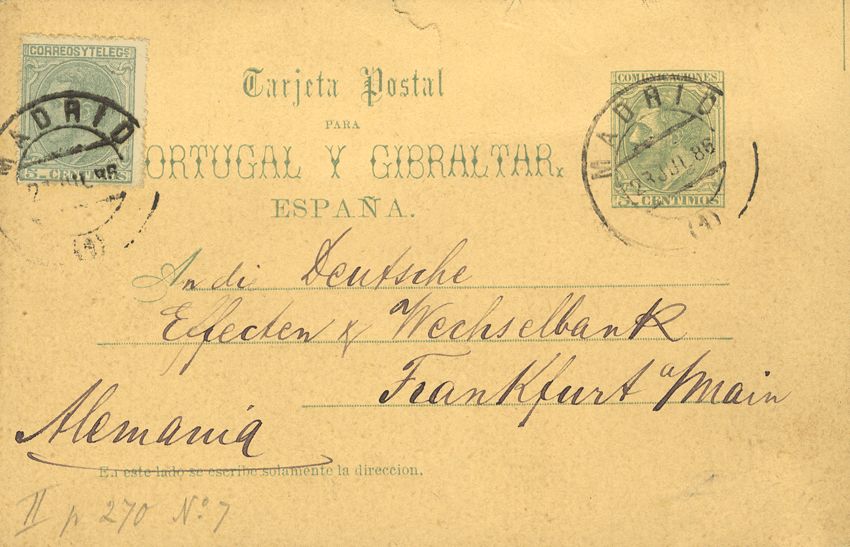 CORREOS Y TELEGS
5 CENTIMOS
MADRID
JUL 86
(1)
Tarjeta Postal
PARA
PORTUGAL Y GIBRALTAR,
ESPAÑA.
COMUNICACIONES
5 CENTIMOS
MADRID
23 JUL 86
(1)
An die Deutsche
Effecten & Wechselbank
Frankfurt a/Main
Alemania
En este lado se escribe solamente la direccion.
II p 270 No. 7